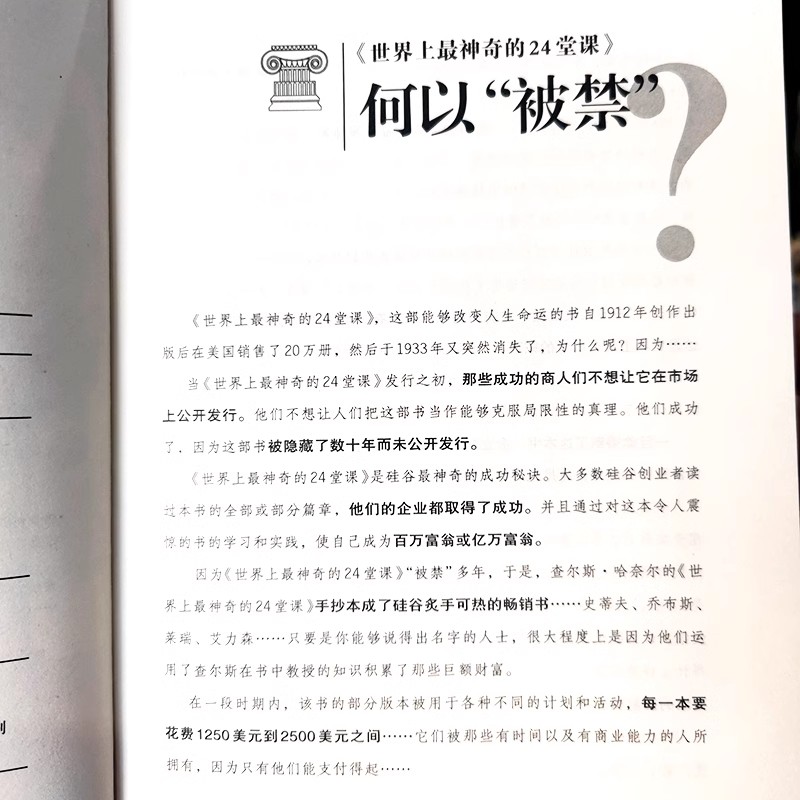 《世界上最神奇的24堂课》
何以“被禁”?
《世界上最神奇的24堂课》，这部能够改变人生命运的书自1912年创作出
版后在美国销售了20万册，然后于1933年又突然消失了，为什么呢？因为……
当《世界上最神奇的24堂课》发行之初，那些成功的商人们不想让它在市场
上公开发行。他们不想让人们把这部书当作能够克服局限性的真理。他们成功
了，因为这部书被隐藏了数十年而未公开发行。
《世界上最神奇的24堂课》是硅谷最神奇的成功秘诀。大多数硅谷创业者读
过本书的全部或部分篇章，他们的企业都取得了成功。并且通过对这本令人震
惊的书的学习和实践，使自己成为百万富翁或亿万富翁。
因为《世界上最神奇的24堂课》“被禁”多年，于是，查尔斯·哈奈尔的《世
界上最神奇的24堂课》手抄本成了硅谷炙手可热的畅销书……史蒂夫、乔布斯、
莱瑞、艾力森……只要是你能够说得出名字的人士，很大程度上是因为他们运
用了查尔斯在书中教授的知识积累了那些巨额财富。
在一段时期内，该书的部分版本被用于各种不同的计划和活动，每一本要
花费1250美元到2500美元之间……它们被那些有时间以及有商业能力的人所
拥有，因为只有他们能支付得起……